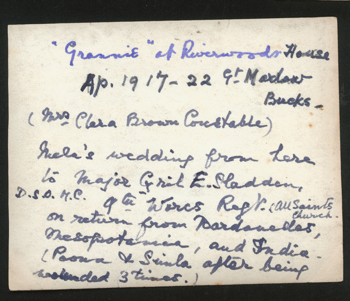 "Grannie" at Riverwoods House
Ap. 1917-22 Gt. Marlow
Bucks-
(Mrs Clara Brown Constable)
Mela's wedding from here
to Major Cyril E. Sladden,
D.S.O. M.C. 9th Worcs Regt. (All Saints Church.
on return from Dardanelles,
Mesopotamia, and India-
(Poona & Simla after being
wounded 3 times.)